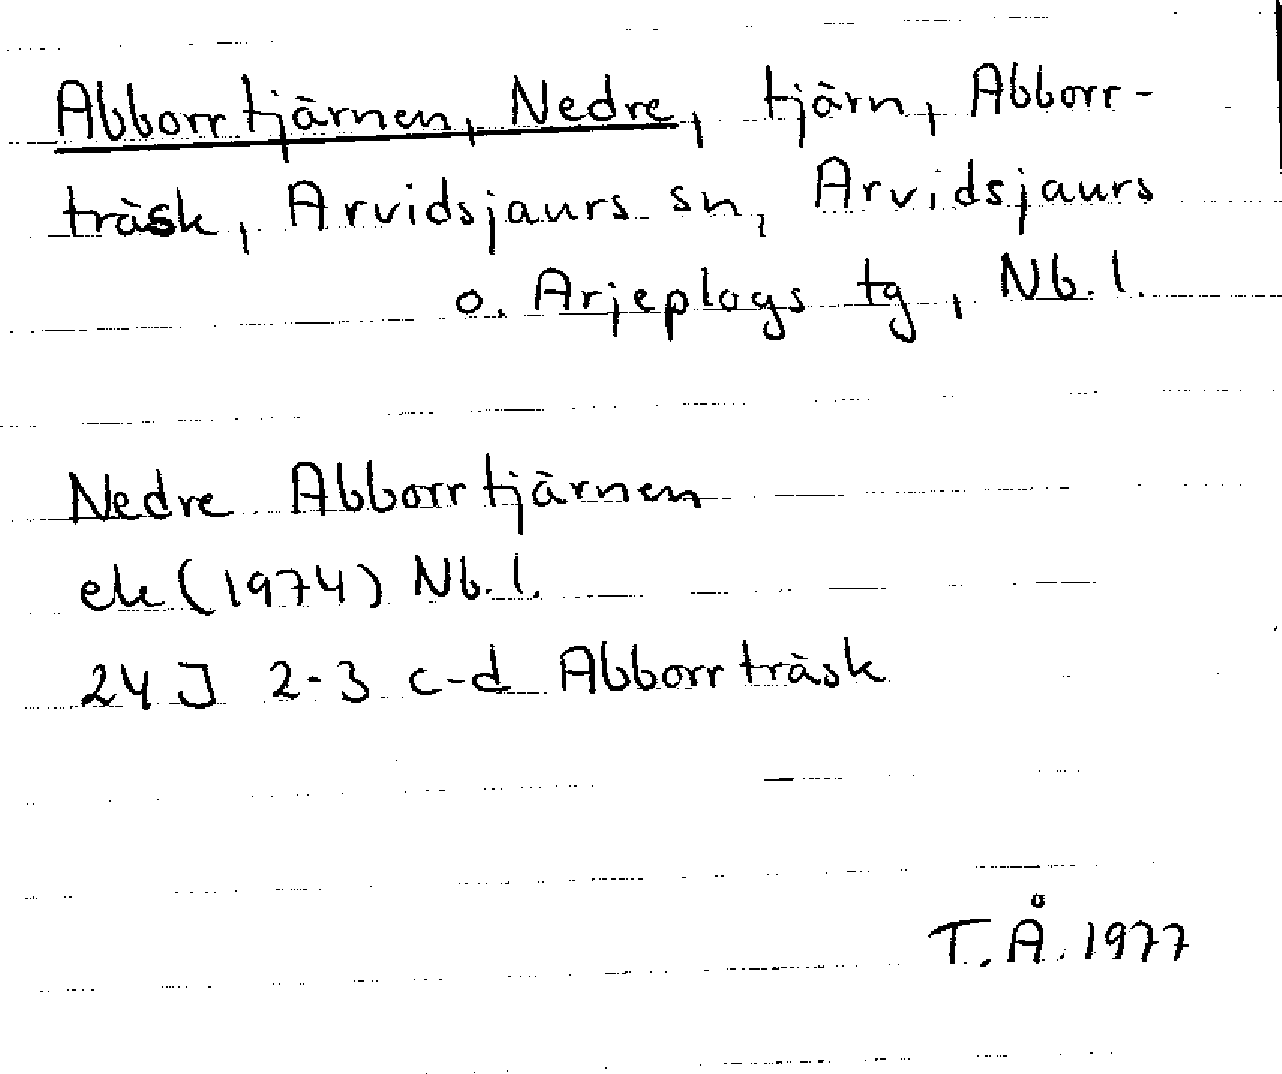 Abborrtjärnen, Nedre, tjärn, Abborr-
träsk, Arvidsjaurs sn, Arvidsjaurs
o. Arjeplogs tg, Nb.l.
Nedre Abborrtjärnen
ek (1974) Nb.l.
24J 2-3 c-d Abborrträsk
T.Å. 1977